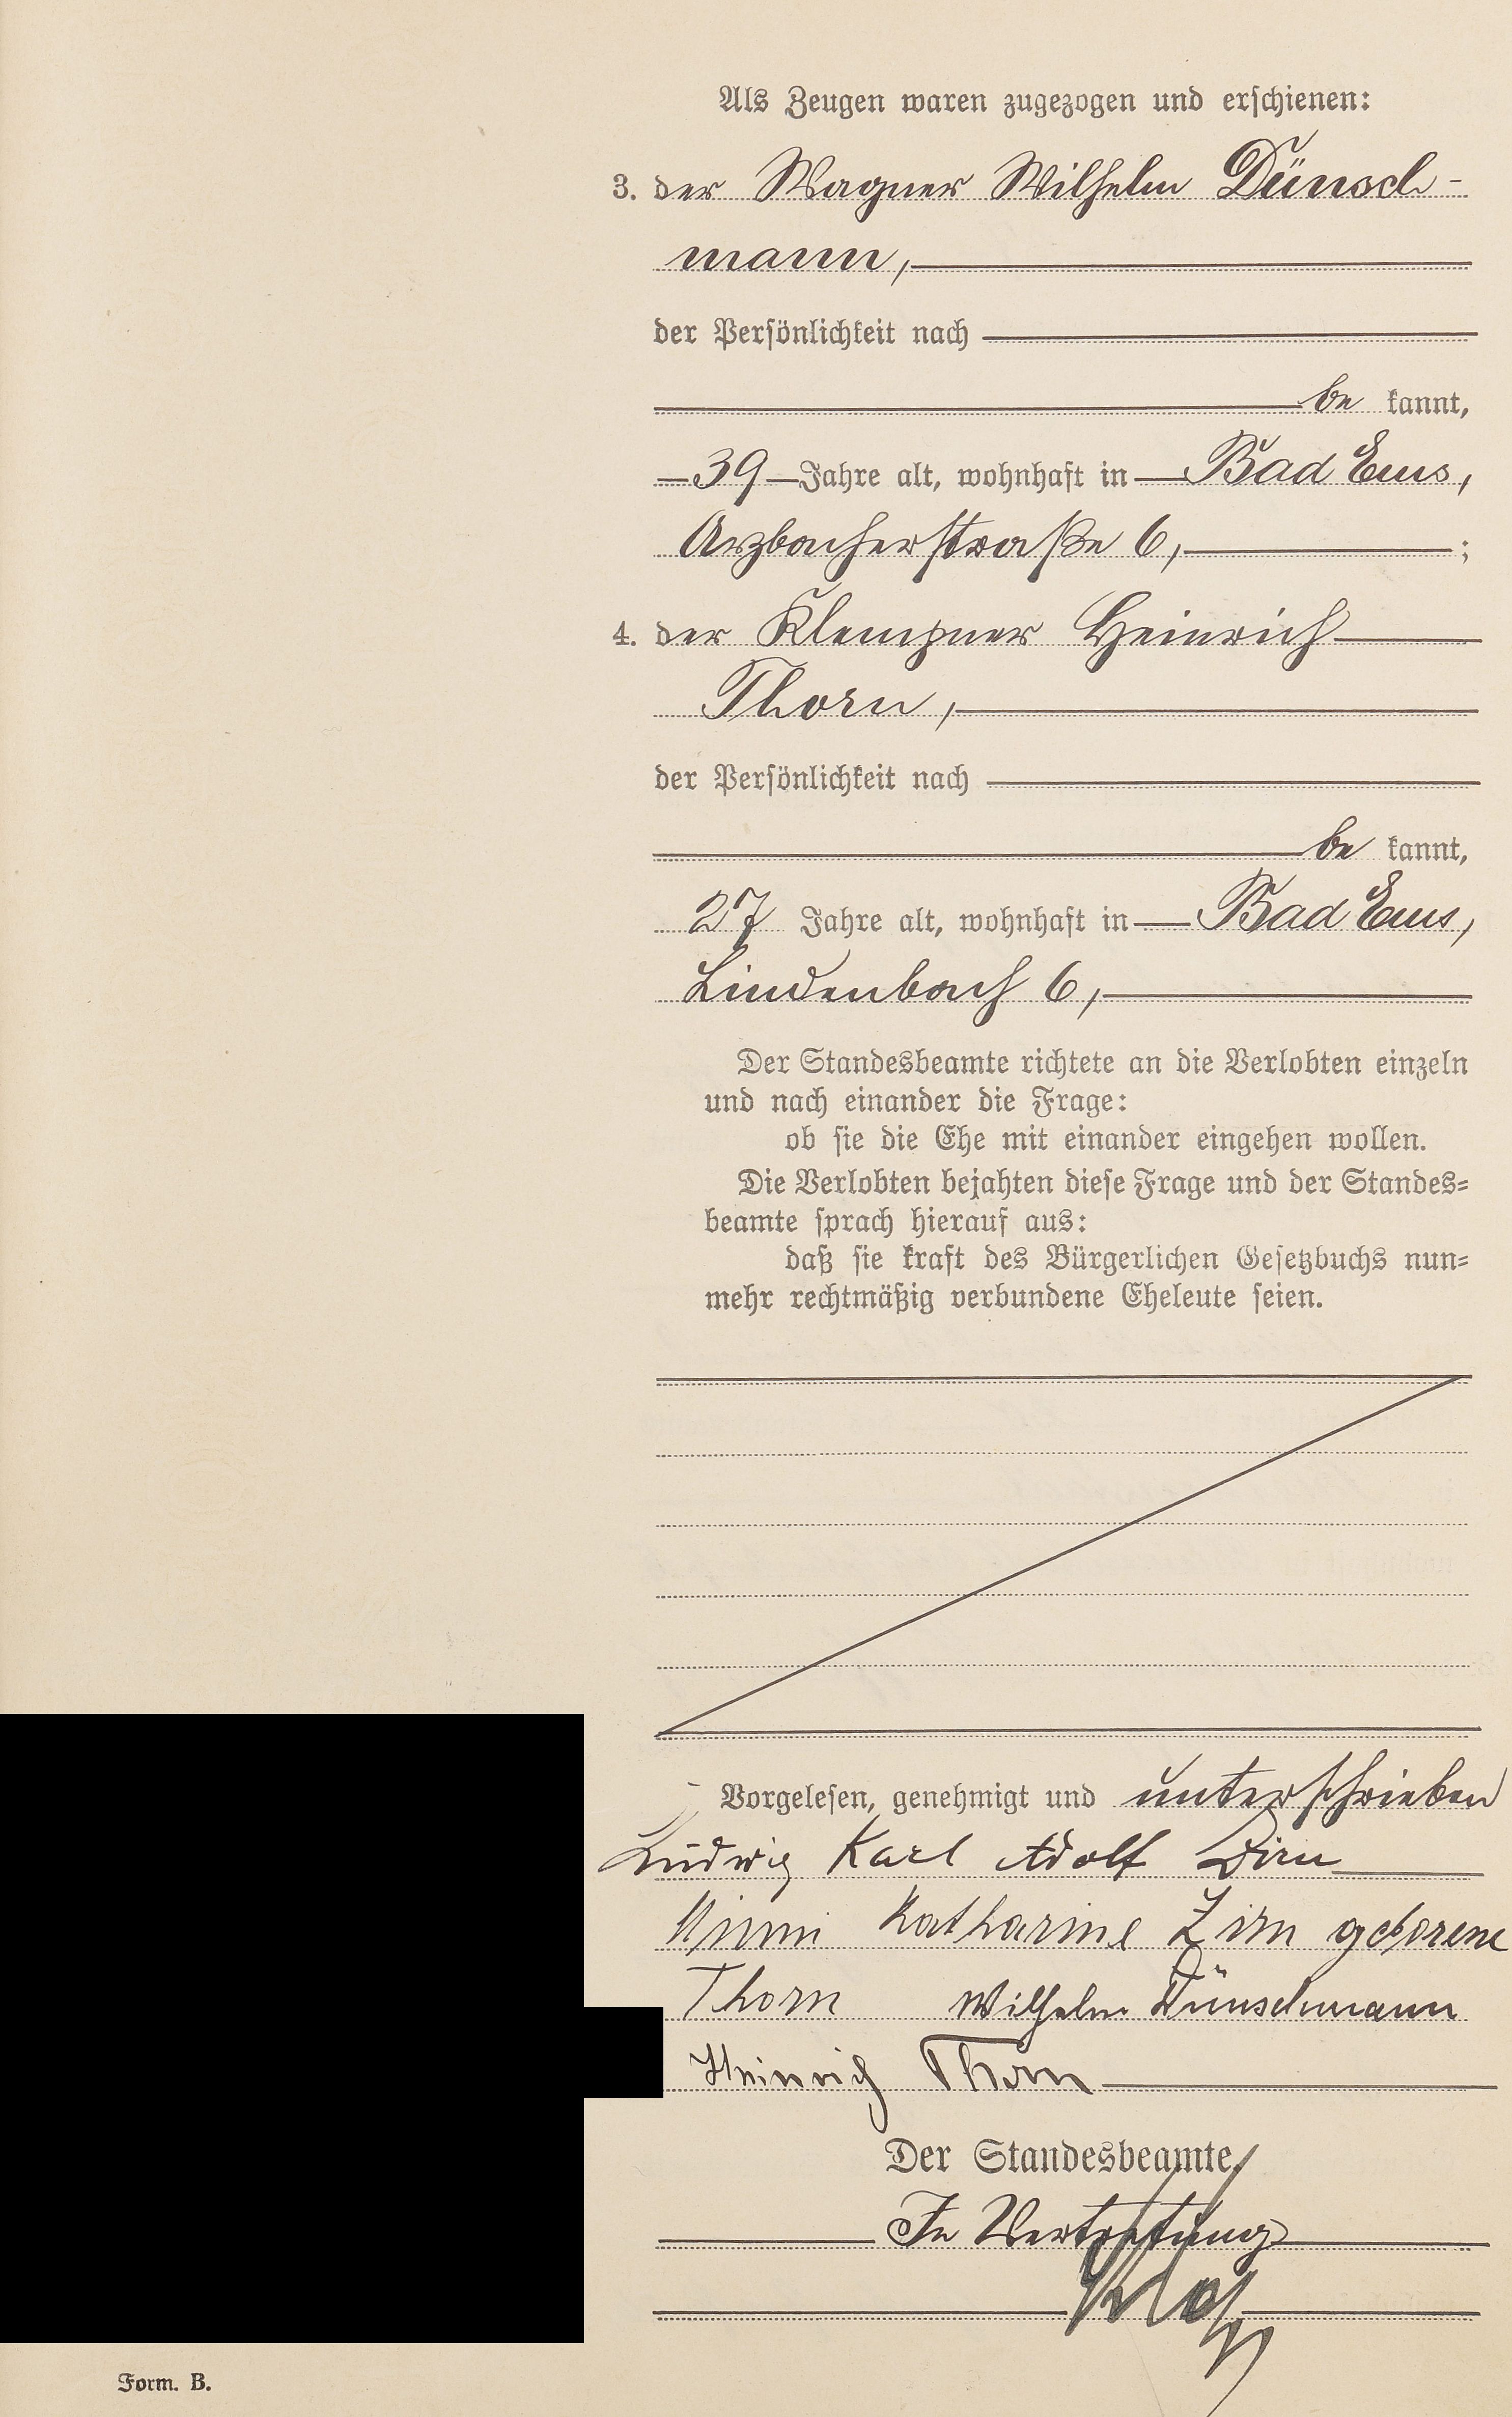 Als Zeugen waren zugezogen und erschienen:
3. der Wagner Wilhelm Dünsch-
mann,
der Persönlichkeit nach
be kannt,
39 Jahre alt, wohnhaft in Bad Ems,
Arzbacherstraße 6, ;
4. der Klempner Heinrich
Thorn,
der Persönlichkeit nach
be kannt,
27 Jahre alt, wohnhaft in Bad Ems,
Lindenbach 6,
Der Standesbeamte richtete an die Verlobten einzeln
und nach einander die Frage:
ob sie die Ehe mit einander eingehen wollen.
Die Verlobten bejahten diese Frage und der Standes-
beamte sprach hierauf aus:
daß sie kraft des Bürgerlichen Gesetzbuchs nun-
mehr rechtmäßig verbundene Eheleute seien.
Vorgelesen, genehmigt und unterschrieben
Ludwig Karl Adolf Zirn
Minni Katharine Zirn geborene
Thorn Wilhelm Dünschmann
Heinrich Thorn
Der Standesbeamte.
In Vertretung
Form. B.